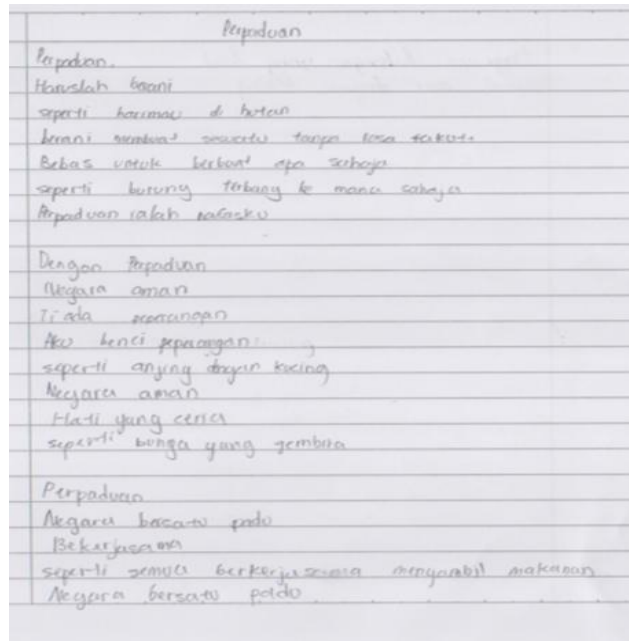 Perpaduan
Perpaduan.
Haruslah berani
seperti harimau di hutan
berani membuat sesuatu tanpa rasa takut.
Bebas untuk berbuat apa sahaja
seperti burung terbang ke mana sahaja
Perpaduan ialah nafasku
Dengan Perpaduan
Negara aman
Tiada peperangan
Aku benci peperangan
seperti anjing dengan kucing
Negara aman
Hati yang ceria
seperti bunga yang gembira
Perpaduan
Negara bersatu padu
Bekerjasama
seperti semua berkerjasama mengambil makanan
Negara bersatu padu